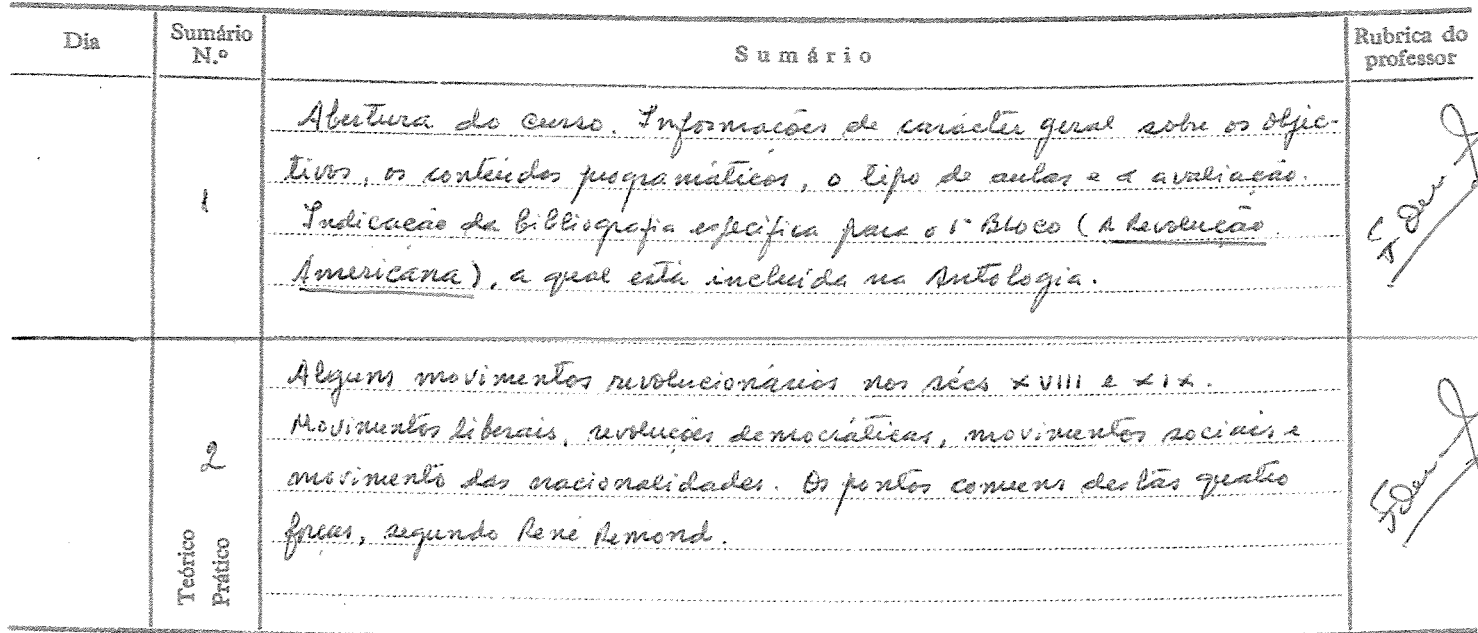 Dia
Sumário N.º
Sumário
Rubrica do professor
1
Abertura do curso. Informações de carácter geral sobre os objec-
tivos, os conteúdos programáticos, o tipo de aulas e a avaliação.
Indicação da bibliografia específica para o 1º Bloco (A Revolução
Americana), a qual está incluída na Antologia.
2
Teórico
Prático
Alguns movimentos revolucionários nos sécs XVIII e XIX.
Movimentos liberais, revoluções democráticas, movimentos sociais e
movimento das nacionalidades. Os pontos comuns destas quatro
forças, segundo René Remond.